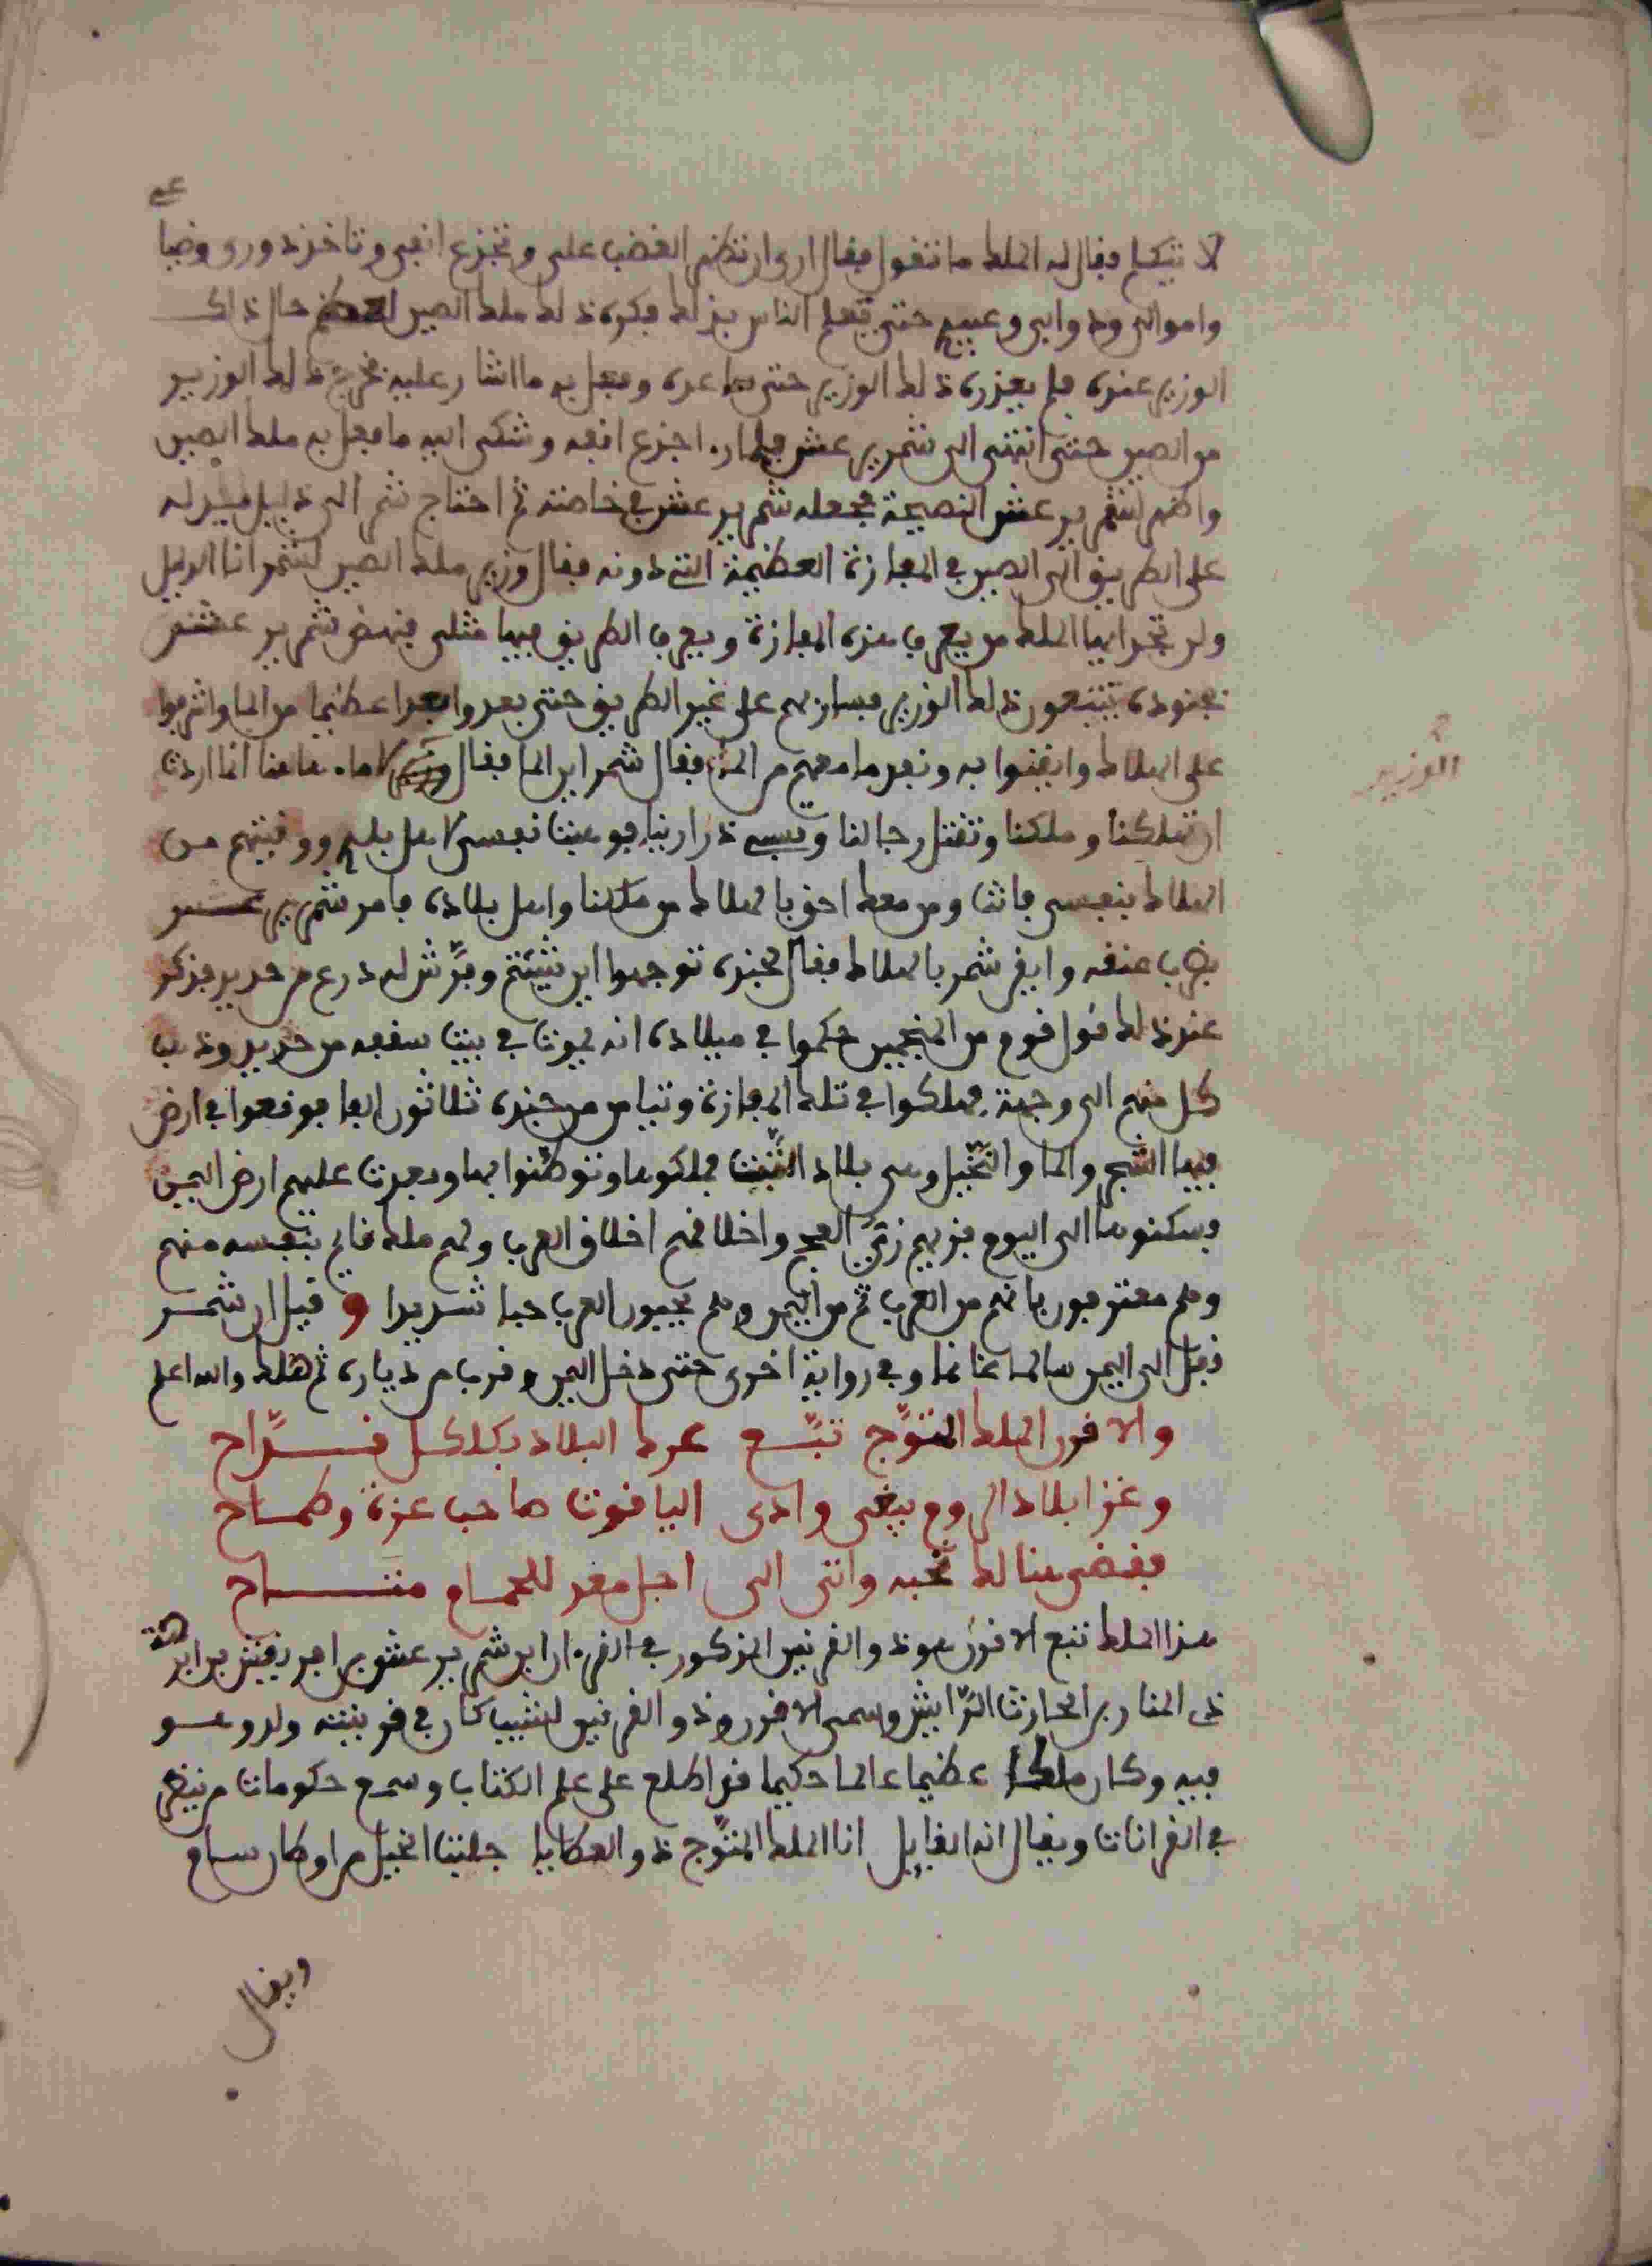 لا تتكلم فقال له الملك ما تقول فقال ارى ان تظهر الغضب علي وتجزع انفي وتاخذ دوري وضيا
واموالي ودوابي وعبيد حتى يعلم الناس بذلك فكره ذلك ملك الصين لعظم حال ذاك
الوزير عنده فلم يعذره ذلك الوزير حتى ساعده وفعل به ما اشار عليه فخرج ذلك الوزير
من الصين حتى انتهى الى شمر يرعش وقد اجزع انفه وشكى اليه ما فعل به ملك الصين
واظهر لشمر يرعش النصيحة فجعله شمر يرعش في خاصته ثم احتاج شمر الى دليل يدله
على الطريق الى الصين في المفازة العظيمة التي دونه فقال وزير ملك الصين لشمر انا الدليل
ولن تجد ايها الملك من يعرف هذه المفازة ويعرف الطريق فيها مثلي فنهض شمر يرعش
بجنوده يتبعون ذلك الوزير فسار بهم على غير الطريق حتى بعدوا بعدا عظيما من الما واشرفوا
على الهلاك وايقنوا به ونفد ما معهم من الما فقال شمر اين الما فقال لا ما هاهنا انما اردت
ان تهلكنا وملكنا وتقتل رجالنا وتسبي ذرارينا فوهبت نفسي لاهل بلدي ووقيتهم من
الهلاك بنفسي فانت ومن معك احق بالهلاك من ملكنا واهل بلاده فامر شمر يرعش
بضرب عنقه وايقن شمر بالهلاك فقال لجنده توجهوا اين شيتم وفرش له درع من حديد فذكر
عند ذلك قول قوم من المنجمين حكموا في ميلاده انه يموت في بيت سقفه من حديد وذهب
كل منهم الى وجهة فهلكوا في تلك المفازة وتيامن من جنده ثلاثون الفا فوقعوا في ارض
فيها الشجر والما والنخيل وهي بلاد التبت فملكوها وتوطنوا بها وبعدت عليهم ارض اليمن
فسكنوها الى اليوم فزيهم زي العجم واخلاقهم اخلاق العرب ولهم ملك قايم بنفسه منهم
وهم معترفون بانهم من العرب ثم من اليمن وهم يحبون العرب حبا شديدا و قيل ان شمر
قفل الى اليمن سالما غانما وفي رواية اخرى حتى دخل اليمن وقرب من دياره ثم هلك والله اعلم
والاقرن الملك المتوج تبع عرك البلاد بكلكل قراح
وغزا بلاد الروم يبغي وادي الياقوت صاحب عزة وطماح
فقضى هنالك نحبه واتى الى اجل معد للحمام متاح
هذا الملك تبع الاقرن هو ذو القرنين المذكور في القرءان ابن شمر يرعش بن افريقيش بن ابرهة
ذي المنار بن الحارث الرايش وسمي الاقرن وذو القرنين لشيب كان في قرينته ولد وهو
فيه وكان ملكا عظيما عالما حكيما قد اطلع على علم الكتاب وسمع حكومات من بقي
في القرانات ويقال انه القايل انا الملك المتوج ذو العطايا جلبت الخيل من اوطان سام
ويقال
الوزير